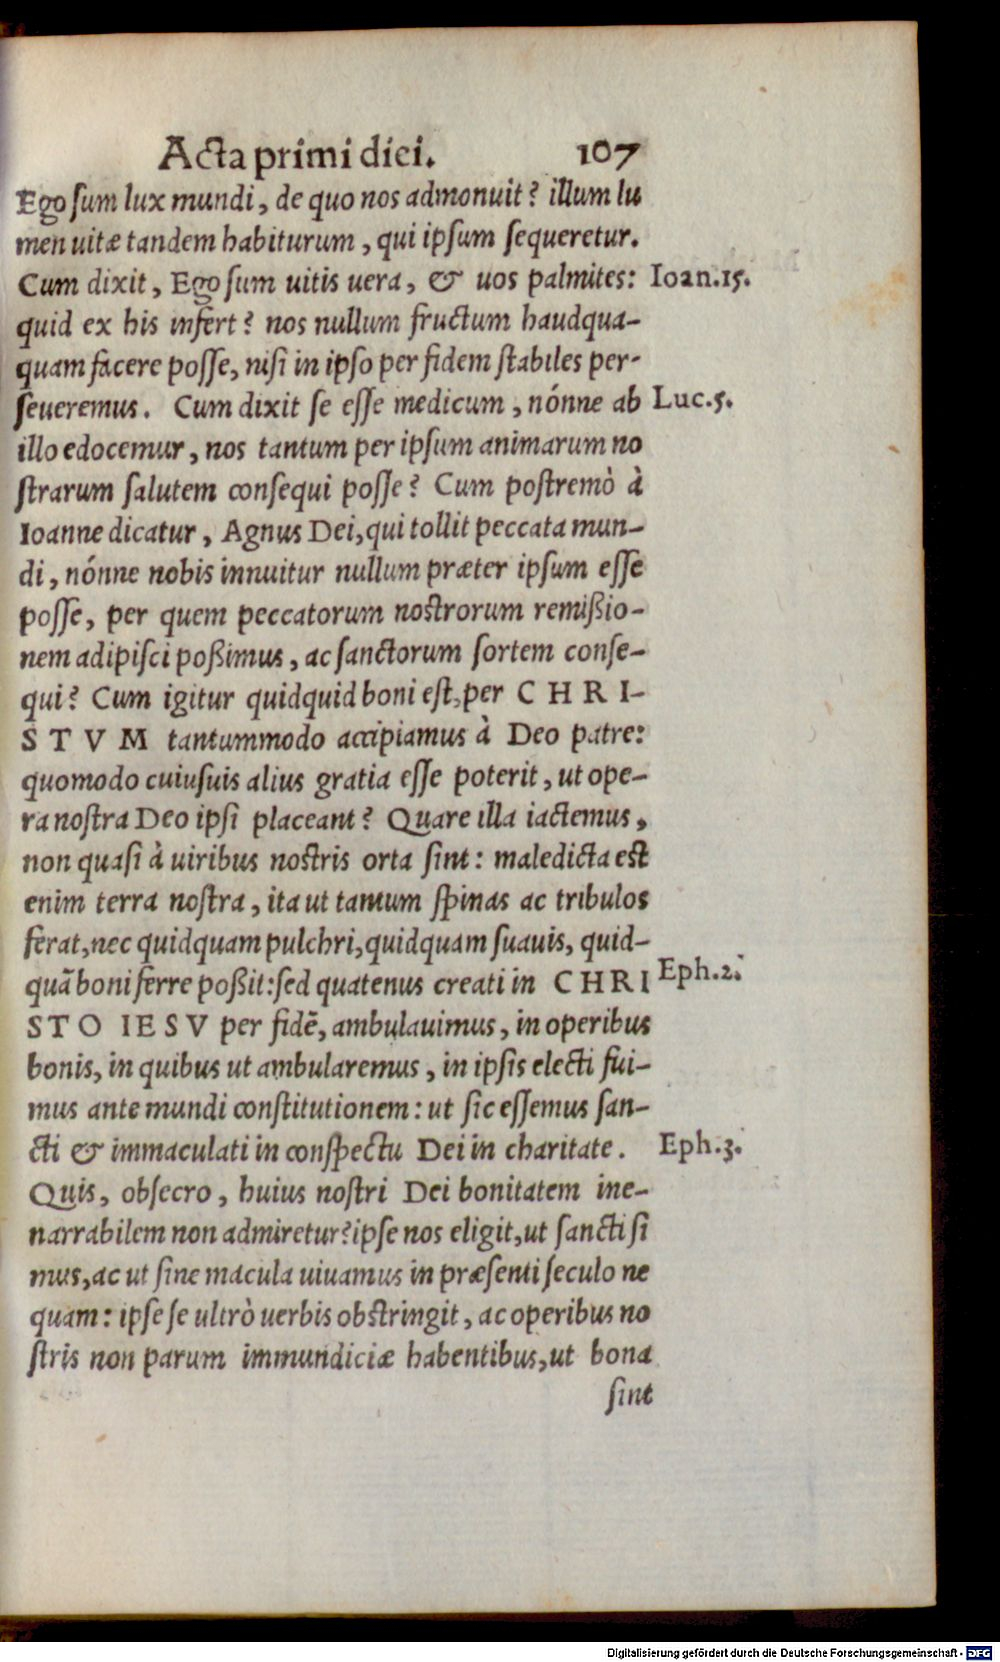 Acta primi diei. 107
Ego sum lux mundi, de quo nos admonuit? illum lu
men uitæ tandem habiturum, qui ipsum sequeretur.
Cum dixit, Ego sum uitis uera, & uos palmites: Ioan.15.
quid ex his infert? nos nullum fructum haudqua-
quam facere posse, nisi in ipso per fidem stabiles per-
seueremus. Cum dixit se esse medicum, nónne ab Luc.5.
illo edocemur, nos tantum per ipsum animarum no
strarum salutem consequi posse? Cum postremò à
Ioanne dicatur, Agnus Dei, qui tollit peccata mun-
di, nónne nobis innuitur nullum præter ipsum esse
posse, per quem peccatorum nostrorum remißio-
nem adipisci poßimus, ac sanctorum sortem conse-
qui? Cum igitur quidquid boni est, per CHRI-
STVM tantummodo accipiamus à Deo patre:
quomodo cuiusuis alius gratia esse poterit, ut ope-
ra nostra Deo ipsi placeant? Quare illa iactemus,
non quasi à uiribus nostris orta sint: maledicta est
enim terra nostra, ita ut tantum spinas ac tribulos
ferat, nec quidquam pulchri, quidquam suauis, quid-
quā boni ferre poßit: sed quatenus creati in CHRI Eph.2.
STO IESV per fidē, ambulauimus, in operibus
bonis, in quibus ut ambularemus, in ipsis electi fui-
mus ante mundi constitutionem: ut sic essemus san-
cti & immaculati in conspectu Dei in charitate. Eph.3.
Quis, obsecro, huius nostri Dei bonitatem ine-
narrabilem non admiretur? ipse nos eligit, ut sancti si
mus, ac ut sine macula uiuamus in præsenti seculo ne
quam: ipse se ultrò uerbis obstringit, ac operibus no
stris non parum immundiciæ habentibus, ut bona
sint
Digitalisierung gefördert durch die Deutsche Forschungsgemeinschaft - DFG